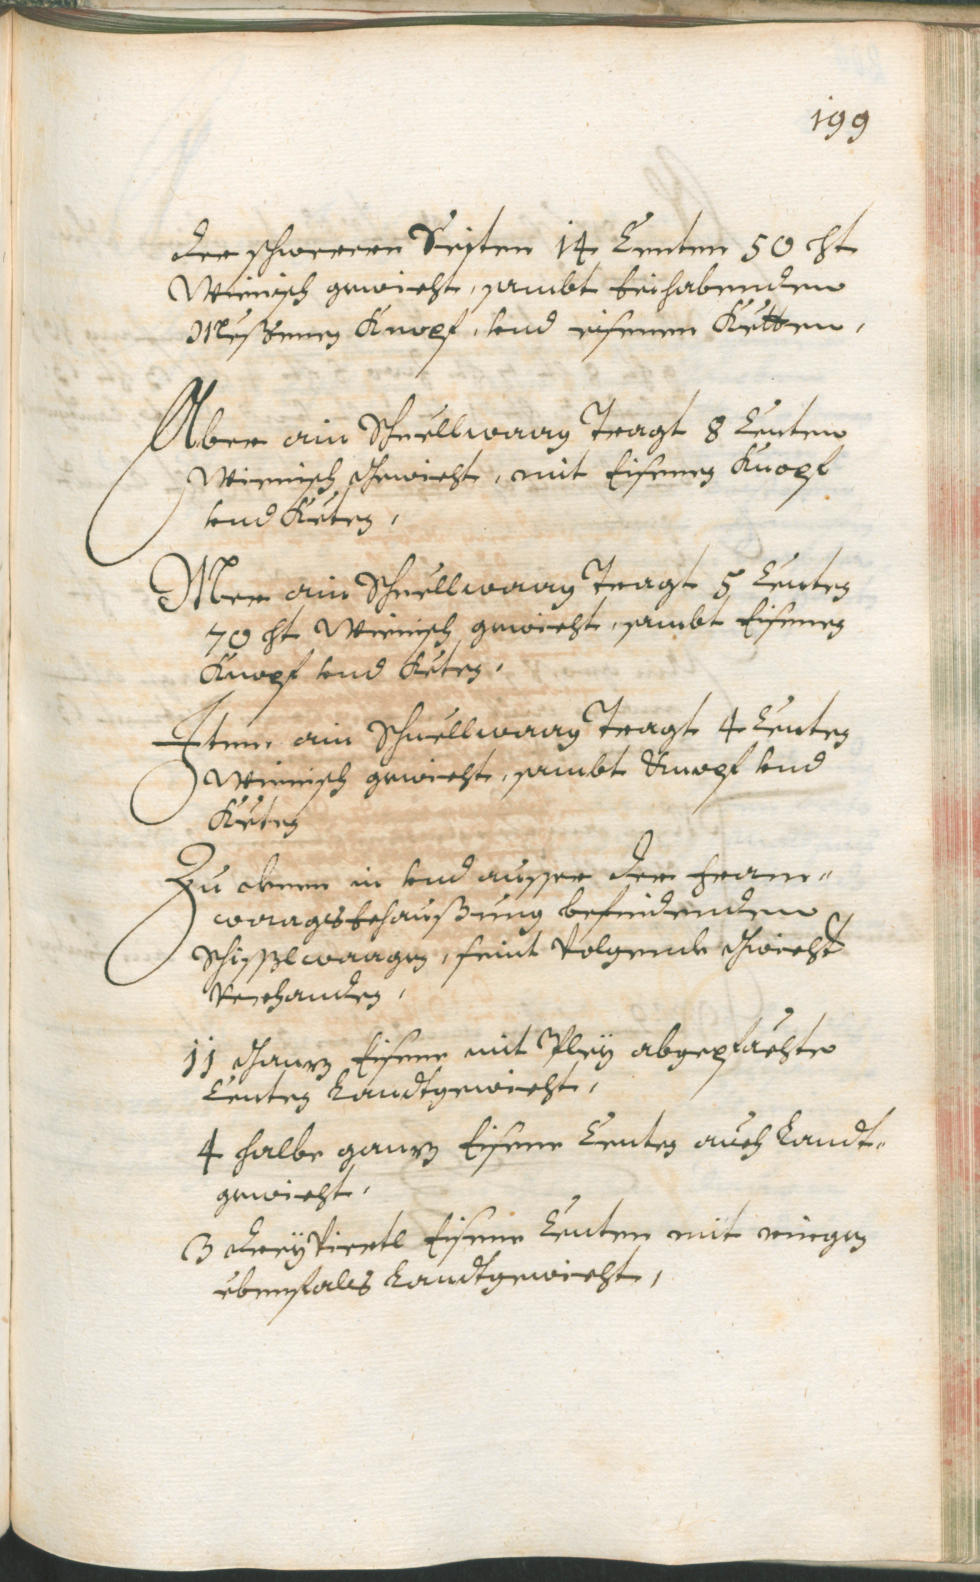 199
der schwerern Seiten 14 Centen 50 ℔
Wienisch gewicht, sambt beihabenden
Meßinen Knopf, vnd eisenen Ketten,
Aber ain Schnellwaag Tragt 8 Centen
Wienisch Gewicht, mit Eisenen Knopf
vnd Keten,
Mer ain Schnellwaag Tragt 5 Centen
70 ℔ Wienisch gewicht, sambt Eisenen
Knopf vnd Keten,
Item ain Schnellwaag Tragt 4 Centen
Wienisch gewicht, sambt Knopf vnd
Keten
Zu denen in vnd ausser der Fron-
waagsbehaußung befindenden
Schisslwaagen, seint Volgende Gwicht
Verhanden,
11 Ganz Eisene mit Pley abgepfächte
Centen Landtgewicht,
4 halbe ganz Eisene Centen auch Landt-
gewicht,
3 drey Viertl Eisene Centen mit ringen
ebenfals Landtgewicht,